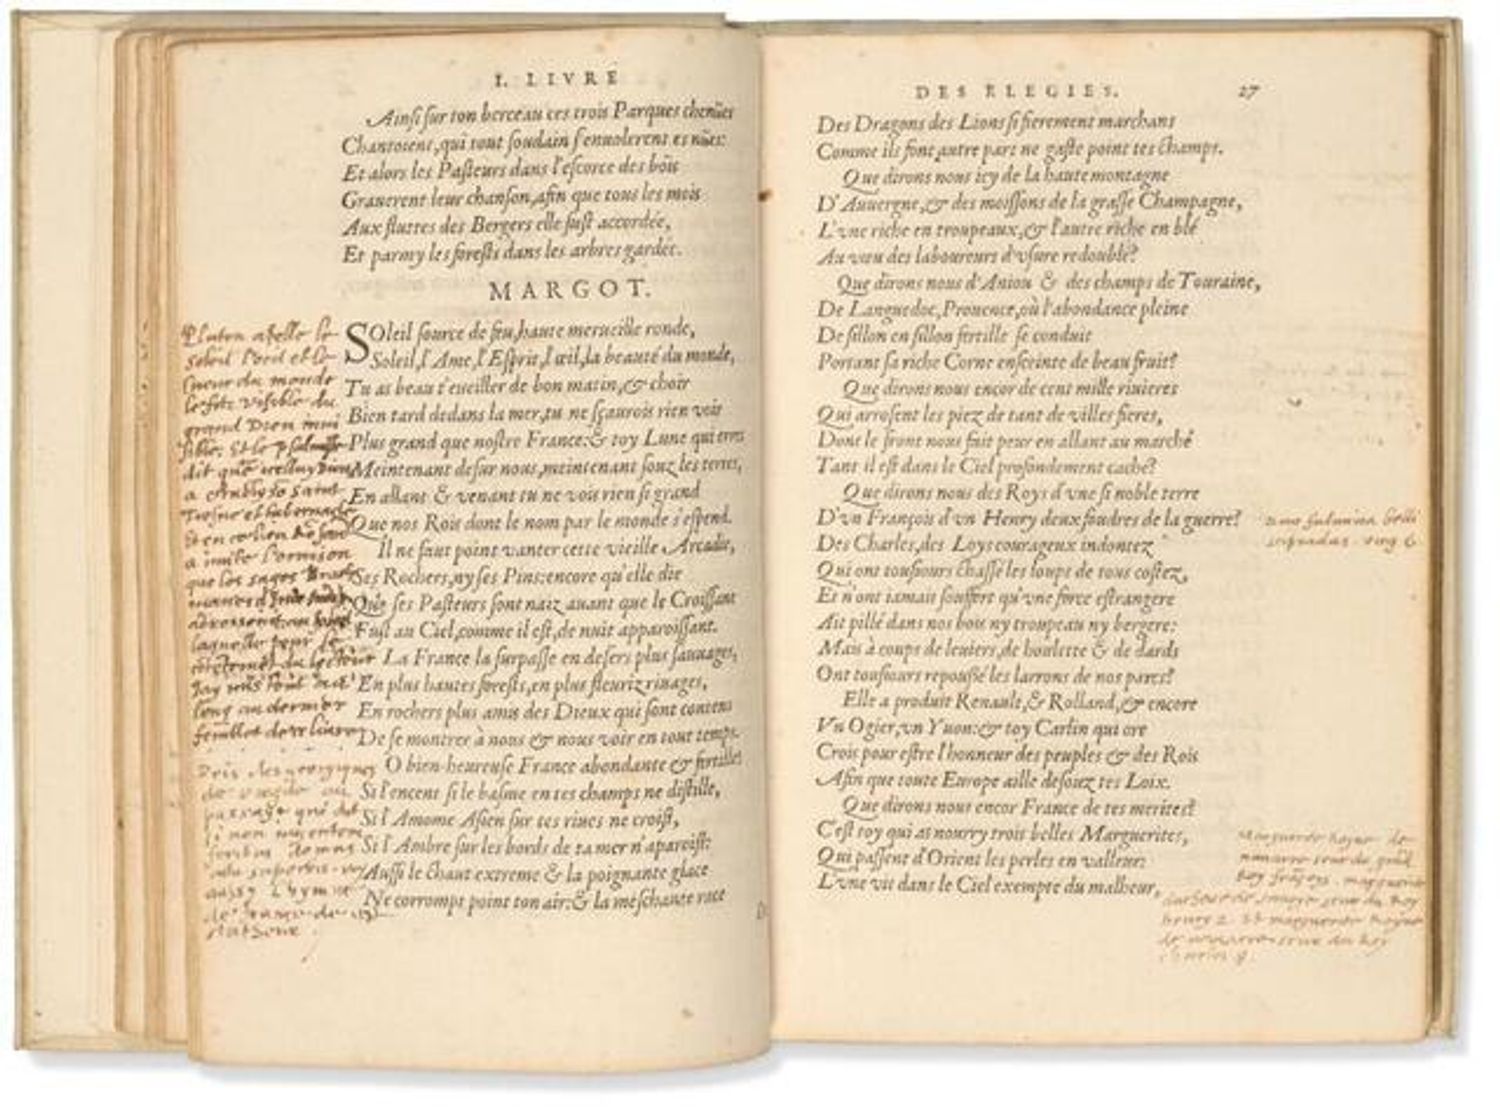 I. LIVRE
Ainsi sur ton berceau ces trois Parques chenües
Chantoient, qui tout soudain s'enuolerent es nües:
Et alors les Pasteurs dans l'escorce des bois
Grauerent leur chanson, afin que tous les mois
Aux fluttes des Bergers elle fust accordée,
Et parmy les forests dans les arbres gardée.
MARGOT.
SOleil source de feu, haute merueille ronde,
Soleil, l'Ame, l'Esprit, l'œil, la beauté du monde,
Tu as beau t'eueiller de bon matin, & choir
Bien tard dedans la mer, tu ne sçaurois rien voir
Plus grand que nostre France: & toy Lune qui erres
Meintenant desur nous, meintenant souz les terres,
En allant & venant tu ne vois rien si grand
Que nos Rois dont le nom par le monde s'espend.
Il ne faut point vanter cette vieille Arcadie,
Ses Rochers, ny ses Pins: encore qu'elle die
Que ses Pasteurs sont naiz auant que le Croissant
Fust au Ciel, comme il est, de nuit apparoissant.
La France la surpasse en desers plus sauuages,
En plus hautes forests, en plus fleuriz riuages,
En rochers plus amis des Dieux qui sont contens
De se montrer à nous & nous voir en tout temps.
O bien-heureuse France abondante & fertille!
Si l'encent si le basme en tes champs ne distille,
Si l'Amome Asien sur tes riues ne croist,
Si l'Ambre sur les bords de ta mer n'aparoist:
Aussi le chaut extreme & la poignante glace
Ne corrompt point ton air: & la meschante race
Pluton apelle le
soleil l'oeil et le
coeur du monde
le filz visible du
grand Dieu inui
sible. Et le psalmiste
dit
a estably so saint
l'oraison
que les sages
long au dernier
feuillet de ce liure
Pris des georgiques
de virgile au
passage qui dit
aussy l'hymne
de france de
DES ELEGIES. 27
Des Dragons des Lions si fierement marchans
Comme ils font autre part ne gaste point tes champs.
Que dirons nous icy de la haute montagne
D'Auuergne, & des moissons de la grasse Champagne,
L'vne riche en troupeaux, & l'autre riche en blé
Au vœu des laboureurs d'vsure redoublé?
Que dirons nous d'Aniou & des champs de Touraine,
De Languedoc, Prouence, où l'abondance pleine
De sillon en sillon fertille se conduit
Portant sa riche Corne enseinte de beau fruit?
Que dirons nous encor de cent mille riuieres
Qui arrosent les piez de tant de villes fieres,
Dont le front nous fait peur en allant au marché
Tant il est dans le Ciel profondement caché?
Que dirons nous des Roys d'vne si noble terre
D'vn François d'vn Henry deux foudres de la guerre?
Des Charles, des Loys courageux indontez
Qui ont tousiours chassé les loups de tous costez,
Et n'ont iamais souffert qu'vne force estrangere
Ait pillé dans nos bois ny troupeau ny bergere:
Mais à coups de leuiers, de houlette & de dards
Ont tousiours repoussé les larrons de nos parcs?
Elle a produit Renault, & Rolland, & encore
Vn Ogier, vn Yuon: & toy Carlin qui ore
Crois pour estre l'honneur des peuples & des Rois
Afin que toute Europe aille desouz tes Loix.
Que dirons nous encor France de tes merites?
C'est toy qui as nourry trois belles Marguerites,
Qui passent d'Orient les perles en valleur:
L'vne vit dans le Ciel exempte du malheur,
fulmina belli
scipiadas. virg 6
Marguerite Royne de
nauarre seur du grād
Roy françoys. marguerite
seur du Roy
henry 2. Et marguerite Royne
de nauarre seur du Roy
charles 9.